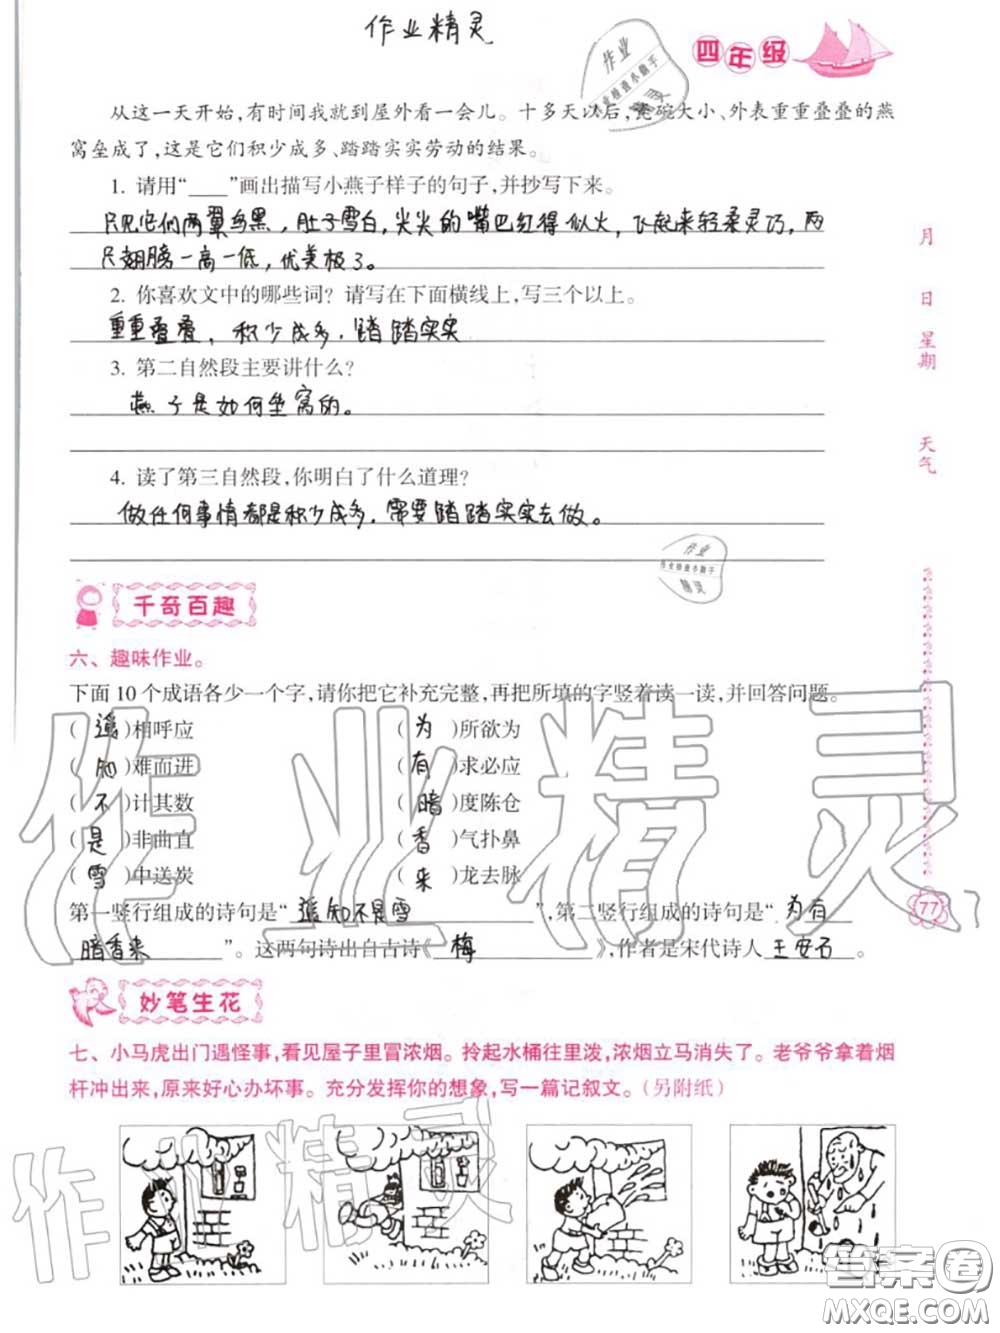 作业精灵
四年级
从这一天开始,有时间我就到屋外看一会儿。十多天以后,瓷碗大小、外表重重叠叠的燕
窝垒成了,这是它们积少成多、踏踏实实劳动的结果。
1. 请用“____”画出描写小燕子样子的句子,并抄写下来。
只见它们两翼乌黑,肚子雪白,尖尖的嘴巴红得似火,飞起来轻柔灵巧,两
只翅膀一高一低,优美极了。
2. 你喜欢文中的哪些词?请写在下面横线上,写三个以上。
重重叠叠,积少成多,踏踏实实
3. 第二自然段主要讲什么?
燕子是如何垒窝的。
4. 读了第三自然段,你明白了什么道理?
做任何事情都是积少成多,需要踏踏实实去做。
千奇百趣
六、趣味作业。
下面10个成语各少一个字,请你把它补充完整,再把所填的字竖着读一读,并回答问题。
(遥)相呼应 (为)所欲为
(知)难而进 (有)求必应
(不)计其数 (暗)度陈仓
(是)非曲直 (香)气扑鼻
(雪)中送炭 (来)龙去脉
第一竖行组成的诗句是“遥知不是雪”,第二竖行组成的诗句是“为有
暗香来”。这两句诗出自古诗《梅》,作者是宋代诗人王安石。
妙笔生花
七、小马虎出门遇怪事,看见屋子里冒浓烟。拎起水桶往里泼,浓烟立马消失了。老爷爷拿着烟
杆冲出来,原来好心办坏事。充分发挥你的想象,写一篇记叙文。(另附纸)
月
日
星期
天气
77
作业精灵
作业精灵
答案圈
MXQE.COM